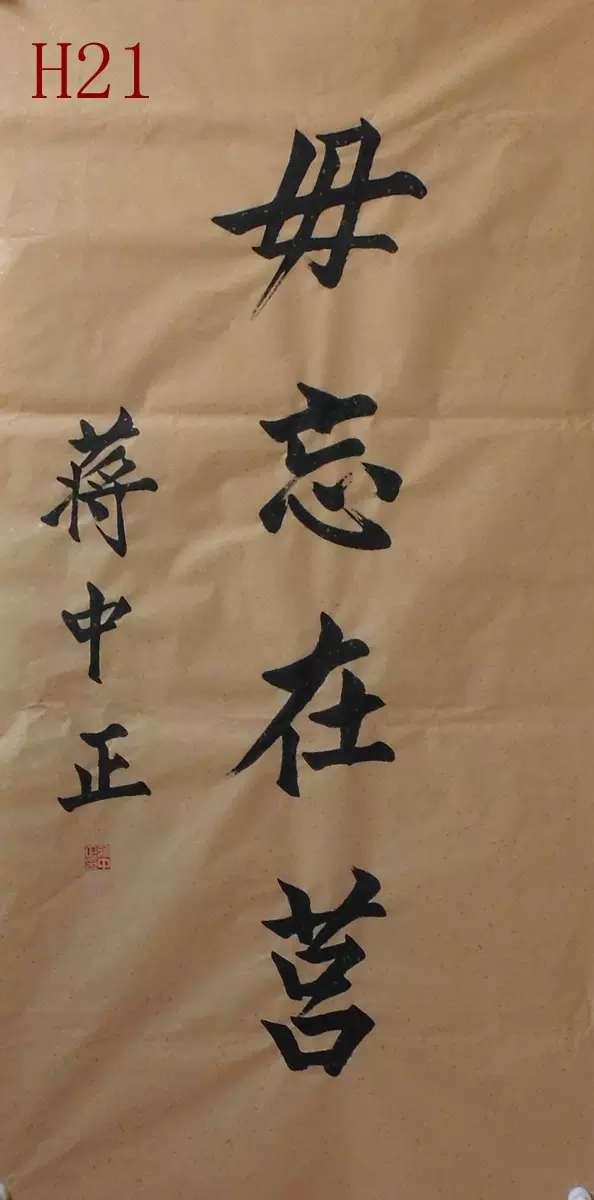 H21
毋忘在莒
蔣中正